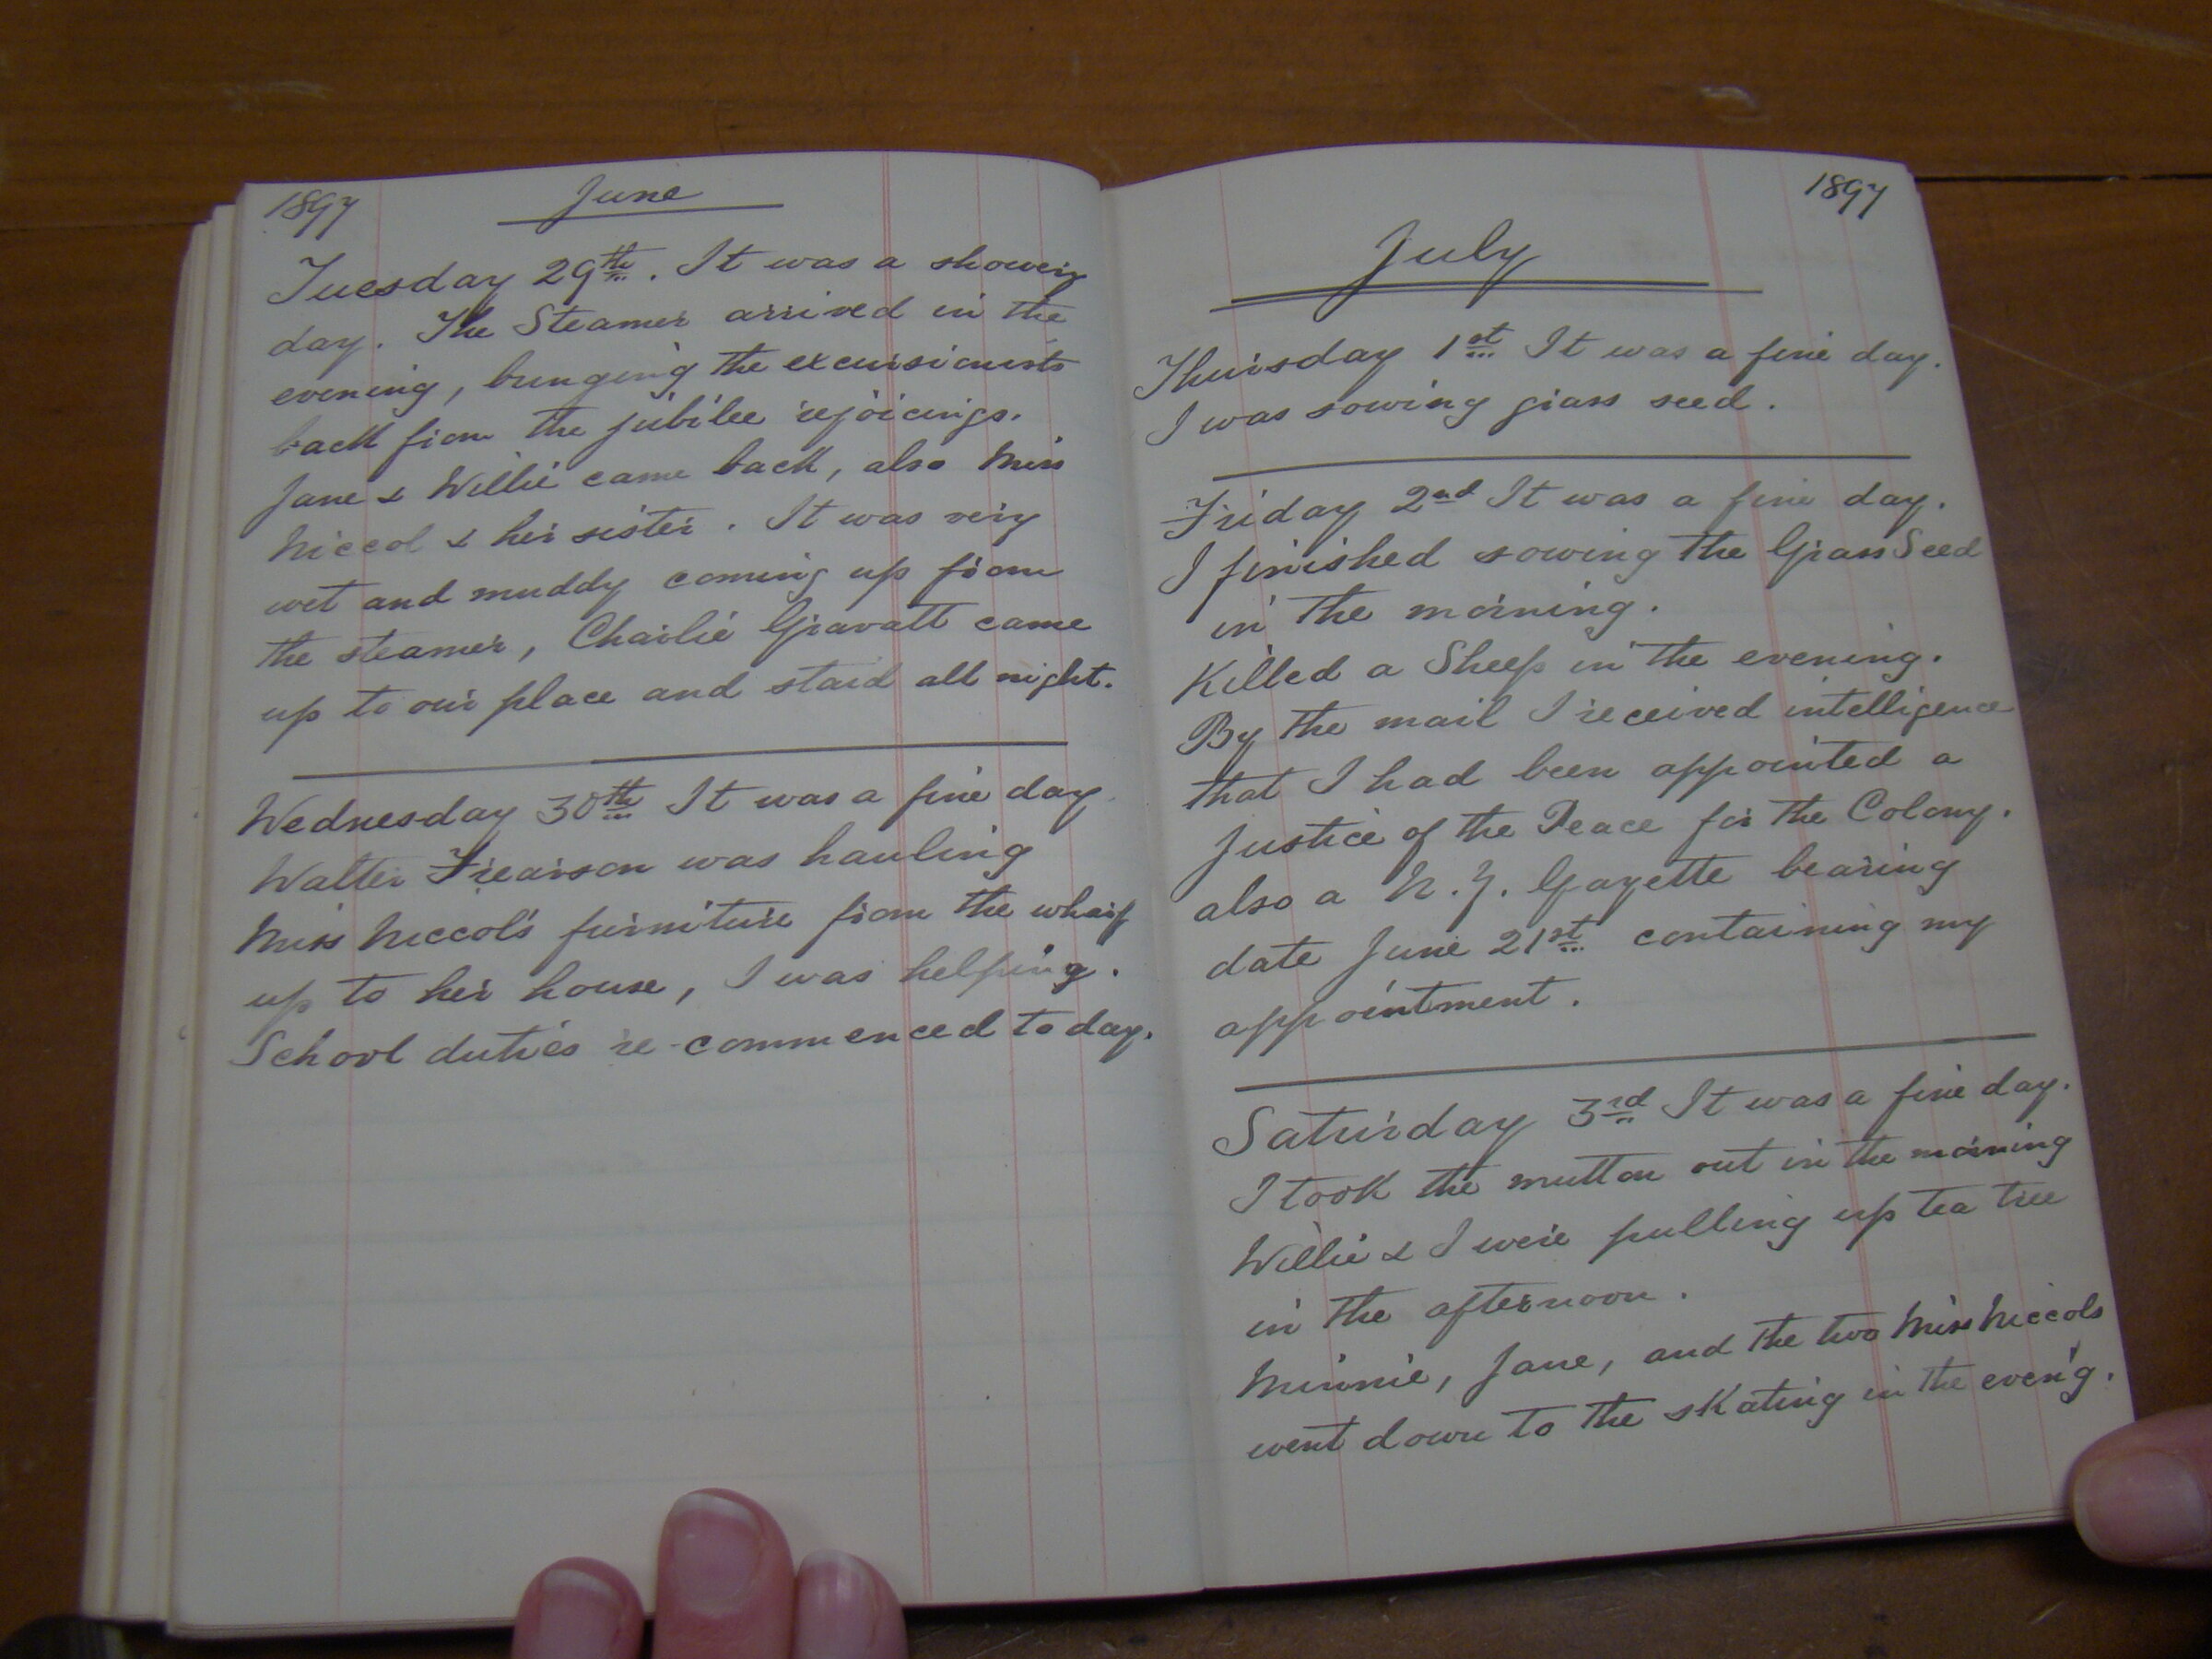 1897
June
Tuesday 29th. It was a showery
day. The Steamer arrived in the
evening, bringing the excursionists
back from the jubilee rejoicings.
Jane & Willie came back, also Miss
Niccol & her sister. It was very
wet and muddy coming up from
the steamer, Charlie Gravatt came
up to our place and staid all night.
Wednesday 30th It was a fine day
Walter Frearson was hauling
Miss Niccol's furniture from the wharf
up to her house, I was helping.
School duties re-commenced today.
1897
July
Thursday 1st It was a fine day.
I was sowing grass seed.
Friday 2nd It was a fine day.
I finished sowing the Grass Seed
in the morning.
Killed a Sheep in the evening.
By the mail I received intelligence
that I had been appointed a
Justice of the Peace for the Colony.
also a N.Z. Gazette bearing
date June 21st containing my
appointment.
Saturday 3rd It was a fine day.
I took the mutton out in the morning
Willie & I were pulling up tea tree
in the afternoon.
Minnie, Jane, and the two Miss Niccols
went down to the skating in the even'g.